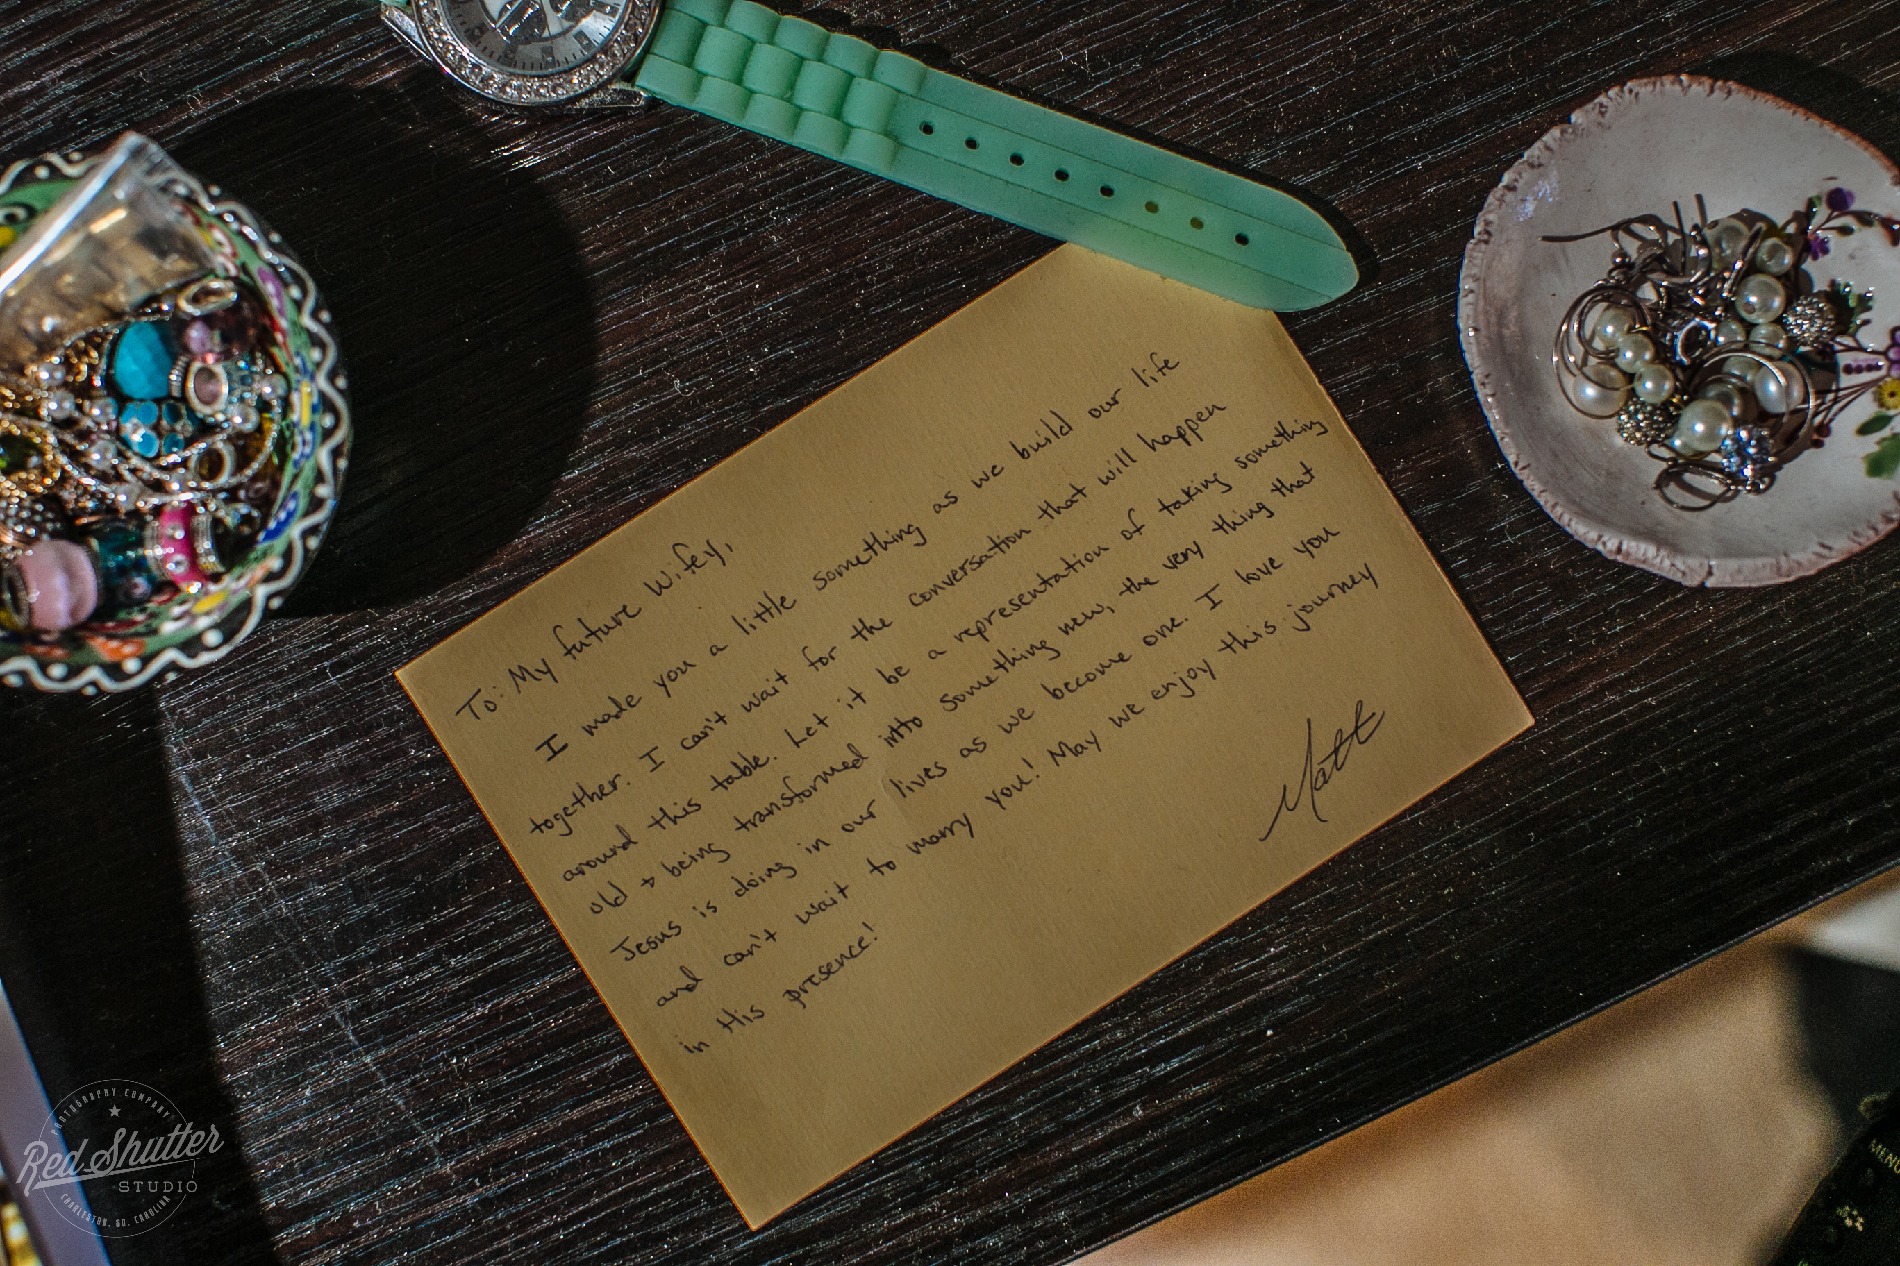 To: My future Wifey,
I made you a little something as we build our life
together. I can't wait for the conversation that will happen
around this table. Let it be a representation of taking something
old + being transformed into something new, the very thing that
Jesus is doing in our lives as we become one. I love you
and can't wait to marry you! May we enjoy this journey
in His presence!
Matt
PHOTOGRAPHY COMPANY
Red Shutter
STUDIO
CHARLESTON, SO. CAROLINA